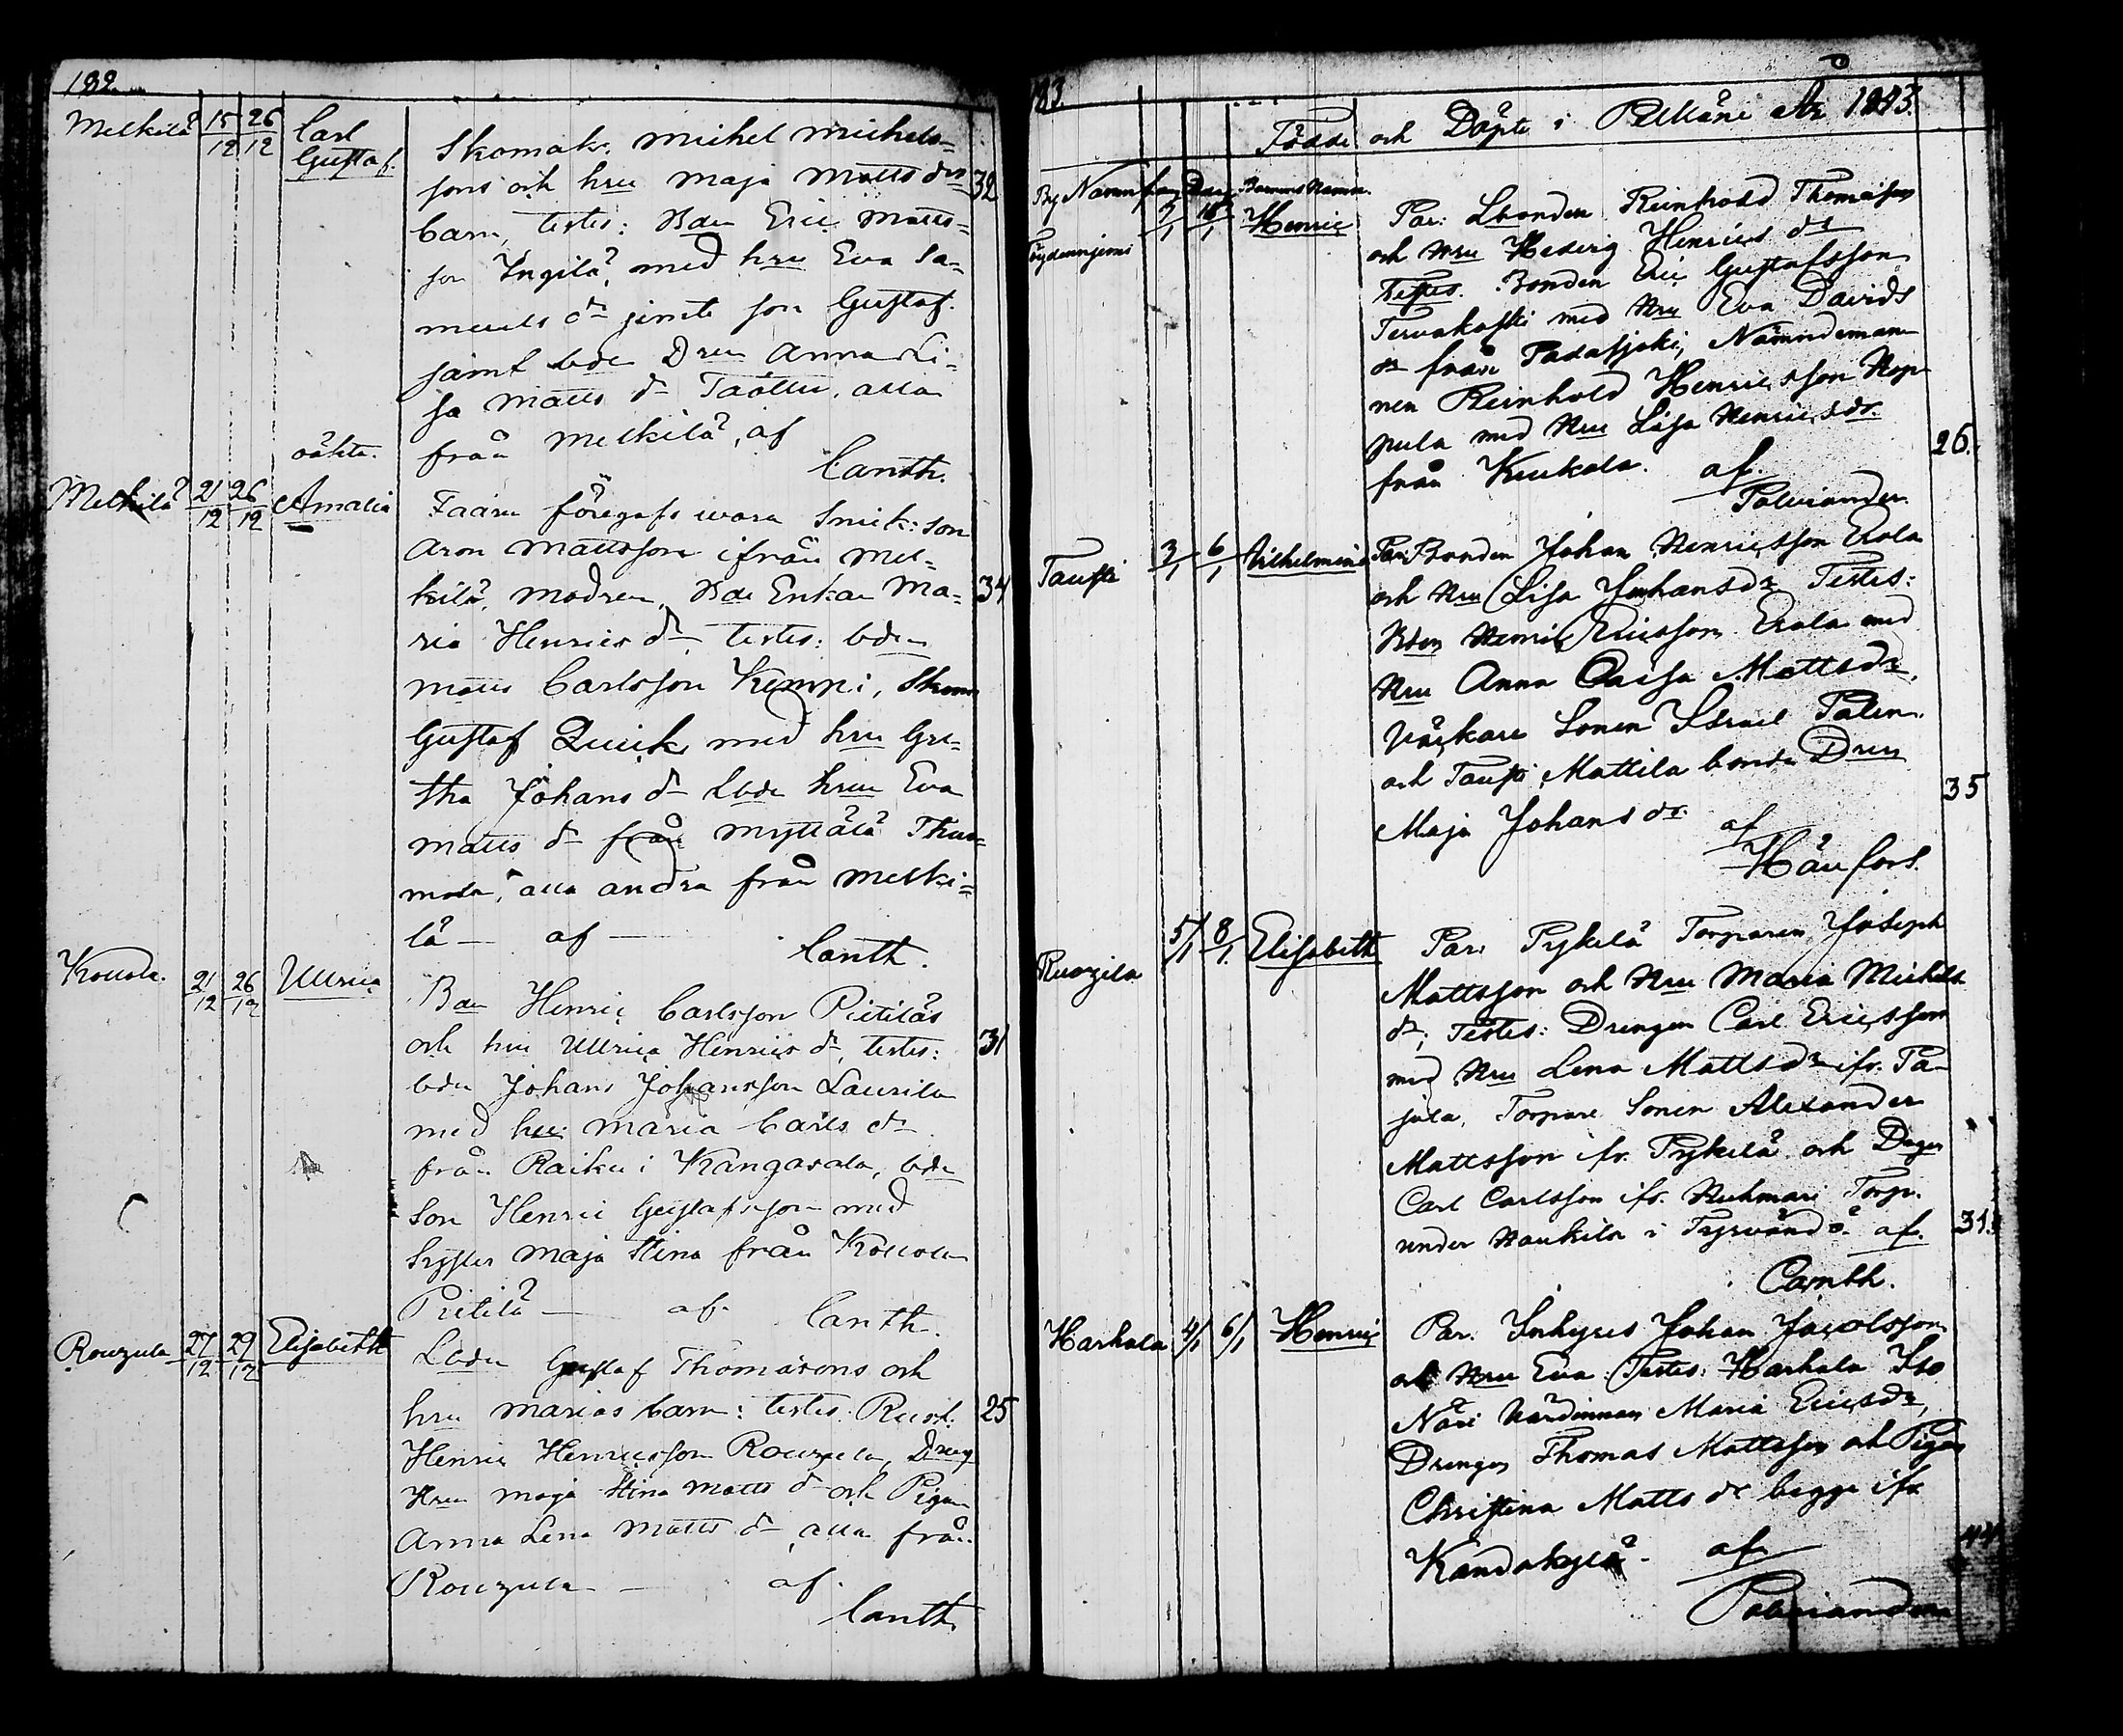 182
Melkilä 15/12 26/12 Carl Gustaf.
Skomak. Michel Michels=
sons och hru Maja Matts dr 32
barn, testes: Bdn Eric Matts=
son Yngilä, med hru Eva Sa=
muels dr jemte son Gustaf.
samt bde Dren Anna Li=
sa Matts dr Taöllu, alla
från Melkilä, af
Canth.
oäkta.
Melkilä 21/12 26/12 Amalia
Fadren föregafs wara Smik: son
Aron Mattsson ifrån Mel=
kilä, modren, Bde Enkan Ma= 34
ria Henrics dr, testes: bdn
Matts Carlsson Kemppi, Skom
Gustaf Quick med hru Gre=
tha Johans dr Lbde hru Eva
Matts dr från Myttälä
alla andra från Melki=
lä — af —
Canth.
Kouola. 21/12 26/12 Ullrica
Bdn Henric Carlsson Pietiläs
och hru Ullrica Henrics dr, testes: 31
bdn Johans Johansson Laurila
med hru Maria Carls dr
från Raiku i Kangasala, bde
Son Henric Gustafsson med
Syster Maja Stina från Kouola
Pietilä — af. Canth.
Rouzula 27/12 29/12 Elisabeth
Lbdn Gustaf Thomasons och
hru Marias barn: testes: Rust. 25
Henric Henricsson Rouzula, Dreng
Hru Maja Stina Matts dr och Pigan
Anna Lena Matts dr, alla från
Rouzula — af.
Canth.
183.
Födde och Döpte i Pelkäne År 1843.
By Namn Dag Barnens Namn.
7/1 15/1 Henric
Par: Lbonden Reinhold Thomasson
och Hru Hedvig Henrics dr
Testes. Bonden Eric Gustafsson
Tervakoski med Hru Eva Davids
dr från Padasjoki, Nämndeman
nen Reinhold Henricsson Hop
pula med Hru Lisa Henricsdr.
från Kukola. af. 26.
Palviander.
Tausti 3/1 6/1 Wilhelmina
Par: Bonden Johan Henricsson Erola
och Hru Lisa Johansdr Testes:
Bden Henric Ericsson Erola med
Hru Anna Caisa Mattsdr,
Israel
och Tausti, Mattila bonde Dren
Maja Johans dr. 35
af
Hänfors.
Ruozila 5/1 8/1 Elisabeth
Par. Pykelä Torparen Joseph
Mattsson och Hru Maria Michels
dr; Testes: Drengen Carl Ericsson
med Hru Lena Mattsdr ifr. Pa-
jula, Torpare Sonen Alexander
Mattsson ifr. Pykelä och Drgn
Carl Carlsson ifr. Huhmari Torp.
under Haukila i Tyrvändö af. 31.
Canth.
Harhala 4/1 6/1 Henric
Par. Inhyses Johan Jacobsson
och Hru Eva. Testes: Harhala Iso
Näri Värdinnan Maria Ericsdr,
Drengen Thomas Mattsson och Pigan
Christina Matts dr begge ifr.
Kandokylä. af 44
Palviander